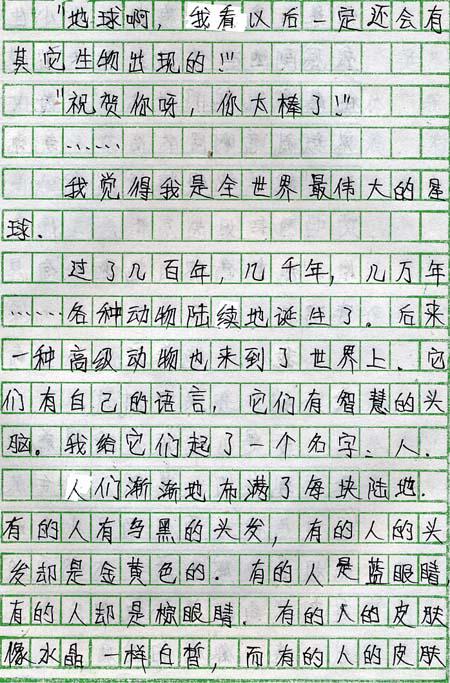 "地球啊，我看以后一定还会有
其它生物出现的！"
"祝贺你呀，你太棒了！"
……
我觉得我是全世界最伟大的星
球．
过了几百年，几千年，几万年
……各种动物陆续地诞生了。后来
一种高级动物也来到了世界上．它
们有自己的语言，它们有智慧的头
脑。我给它们起了一个名字：人．
人们渐渐地布满了每块陆地．
有的人有乌黑的头发，有的人的头
发却是金黄色的．有的人是蓝眼睛，
有的人却是棕眼睛．有的人的皮肤
像水晶一样白皙，而有的人的皮肤